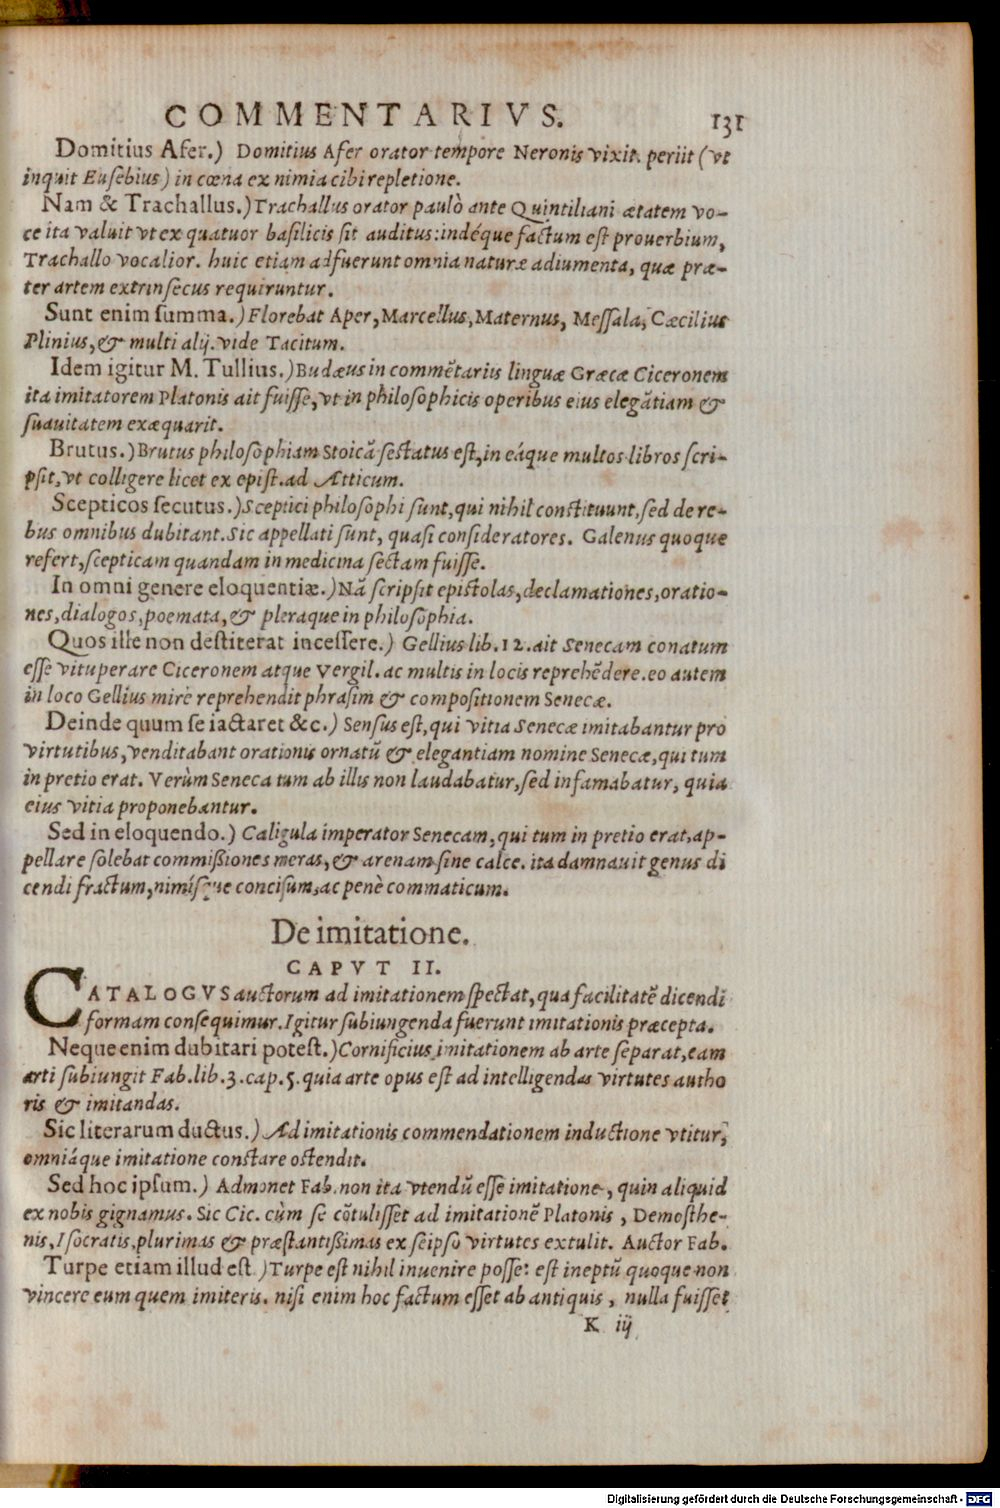 COMMENTARIVS. 131
Domitius Afer.) Domitius Afer orator tempore Neronis vixit. periit (vt
inquit Eusebius) in cœna ex nimia cibi repletione.
Nam & Trachallus.) Trachallus orator paulò ante Quintiliani ætatem vo-
ce ita valuit vt ex quatuor basilicis sit auditus: indéque factum est prouerbium,
Trachallo vocalior. huic etiam adfuerunt omnia naturæ adiumenta, quæ præ-
ter artem extrinsecus requiruntur.
Sunt enim summa.) Florebat Aper, Marcellus, Maternus, Messala, Cæcilius
Plinius, & multi alij. vide Tacitum.
Idem igitur M. Tullius.) Budæus in commẽtariis linguæ Græcæ Ciceronem
ita imitatorem Platonis ait fuisse, vt in philosophicis operibus eius elegãtiam &
suauitatem exæquarit.
Brutus.) Brutus philosophiam Stoicã sectatus est, in eáque multos libros scri-
psit, vt colligere licet ex epist. ad Atticum.
Scepticos secutus.) Sceptici philosophi sunt, qui nihil constituunt, sed de re-
bus omnibus dubitant. Sic appellati sunt, quasi consideratores. Galenus quoque
refert, scepticam quandam in medicina sectam fuisse.
In omni genere eloquentiæ.) Nã scripsit epistolas, declamationes, oratio-
nes, dialogos, poemata, & pleraque in philosophia.
Quos ille non destiterat incessere.) Gellius lib. 12. ait Senecam conatum
esse vituperare Ciceronem atque Vergil. ac multis in locis reprehẽdere. eo autem
in loco Gellius mirè reprehendit phrasim & compositionem Senecæ.
Deinde quum se iactaret &c.) Sensus est, qui vitia Senecæ imitabantur pro
virtutibus, venditabant orationis ornatũ & elegantiam nomine Senecæ, qui tum
in pretio erat. Verùm Seneca tum ab illis non laudabatur, sed infamabatur, quia
eius vitia proponebantur.
Sed in eloquendo.) Caligula imperator Senecam, qui tum in pretio erat, ap-
pellare solebat commißiones meras, & arenam sine calce. ita damnauit genus di
cendi fractum, nimísque concisum, ac penè commaticum.
De imitatione.
CAPVT II.
CATALOGVS auctorum ad imitationem spectat, qua facilitatẽ dicendi
formam consequimur. Igitur subiungenda fuerunt imitationis præcepta.
Neque enim dubitari potest.) Cornificius imitationem ab arte separat, eam
arti subiungit Fab. lib. 3. cap. 5. quia arte opus est ad intelligendas virtutes autho
ris & imitandas.
Sic literarum ductus.) Ad imitationis commendationem inductione vtitur,
omniáque imitatione constare ostendit.
Sed hoc ipsum.) Admonet Fab. non ita vtendũ esse imitatione, quin aliquid
ex nobis gignamus. Sic Cic. cùm se cõtulisset ad imitationẽ Platonis, Demosthe-
nis, Isocratis, plurimas & præstantißimas ex seipso virtutes extulit. Auctor Fab.
Turpe etiam illud est.) Turpe est nihil inuenire posse: est ineptũ quoque non
vincere eum quem imiteris. nisi enim hoc factum esset ab antiquis, nulla fuisset
K iij
Digitalisierung gefördert durch die Deutsche Forschungsgemeinschaft - DFG